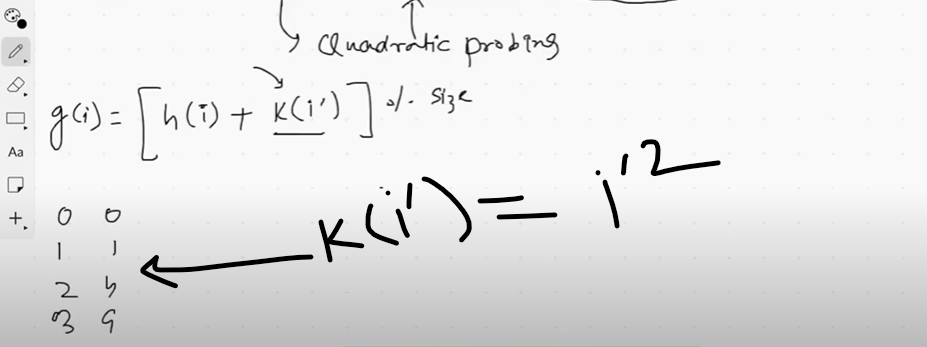 Quadratic probing
g(i) = [h(i) + k(i')] % size
k(i') = i'2
Aa
0 0
1 1
2 4
3 9